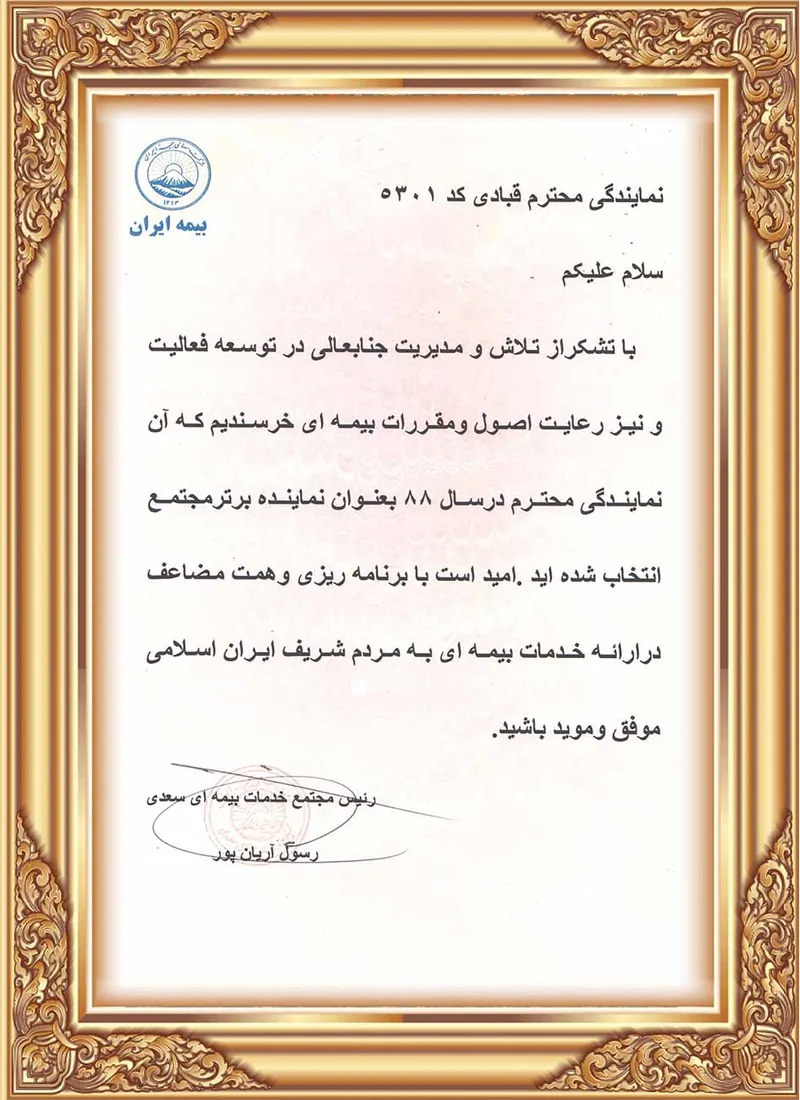 بیمه ایران
نمایندگی محترم قبادی کد ۵۳۰۱
سلام علیکم
با تشکراز تلاش و مدیریت جنابعالی در توسعه فعالیت
و نیز رعایت اصول ومقررات بیمه ای خرسندیم که آن
نمایندگی محترم درسال ۸۸ بعنوان نماینده برترمجتمع
انتخاب شده اید .امید است با برنامه ریزی وهمت مضاعف
درارائه خدمات بیمه ای به مردم شریف ایران اسلامی
موفق وموید باشید.
رئیس مجتمع خدمات بیمه ای سعدی
رسول آریان پور